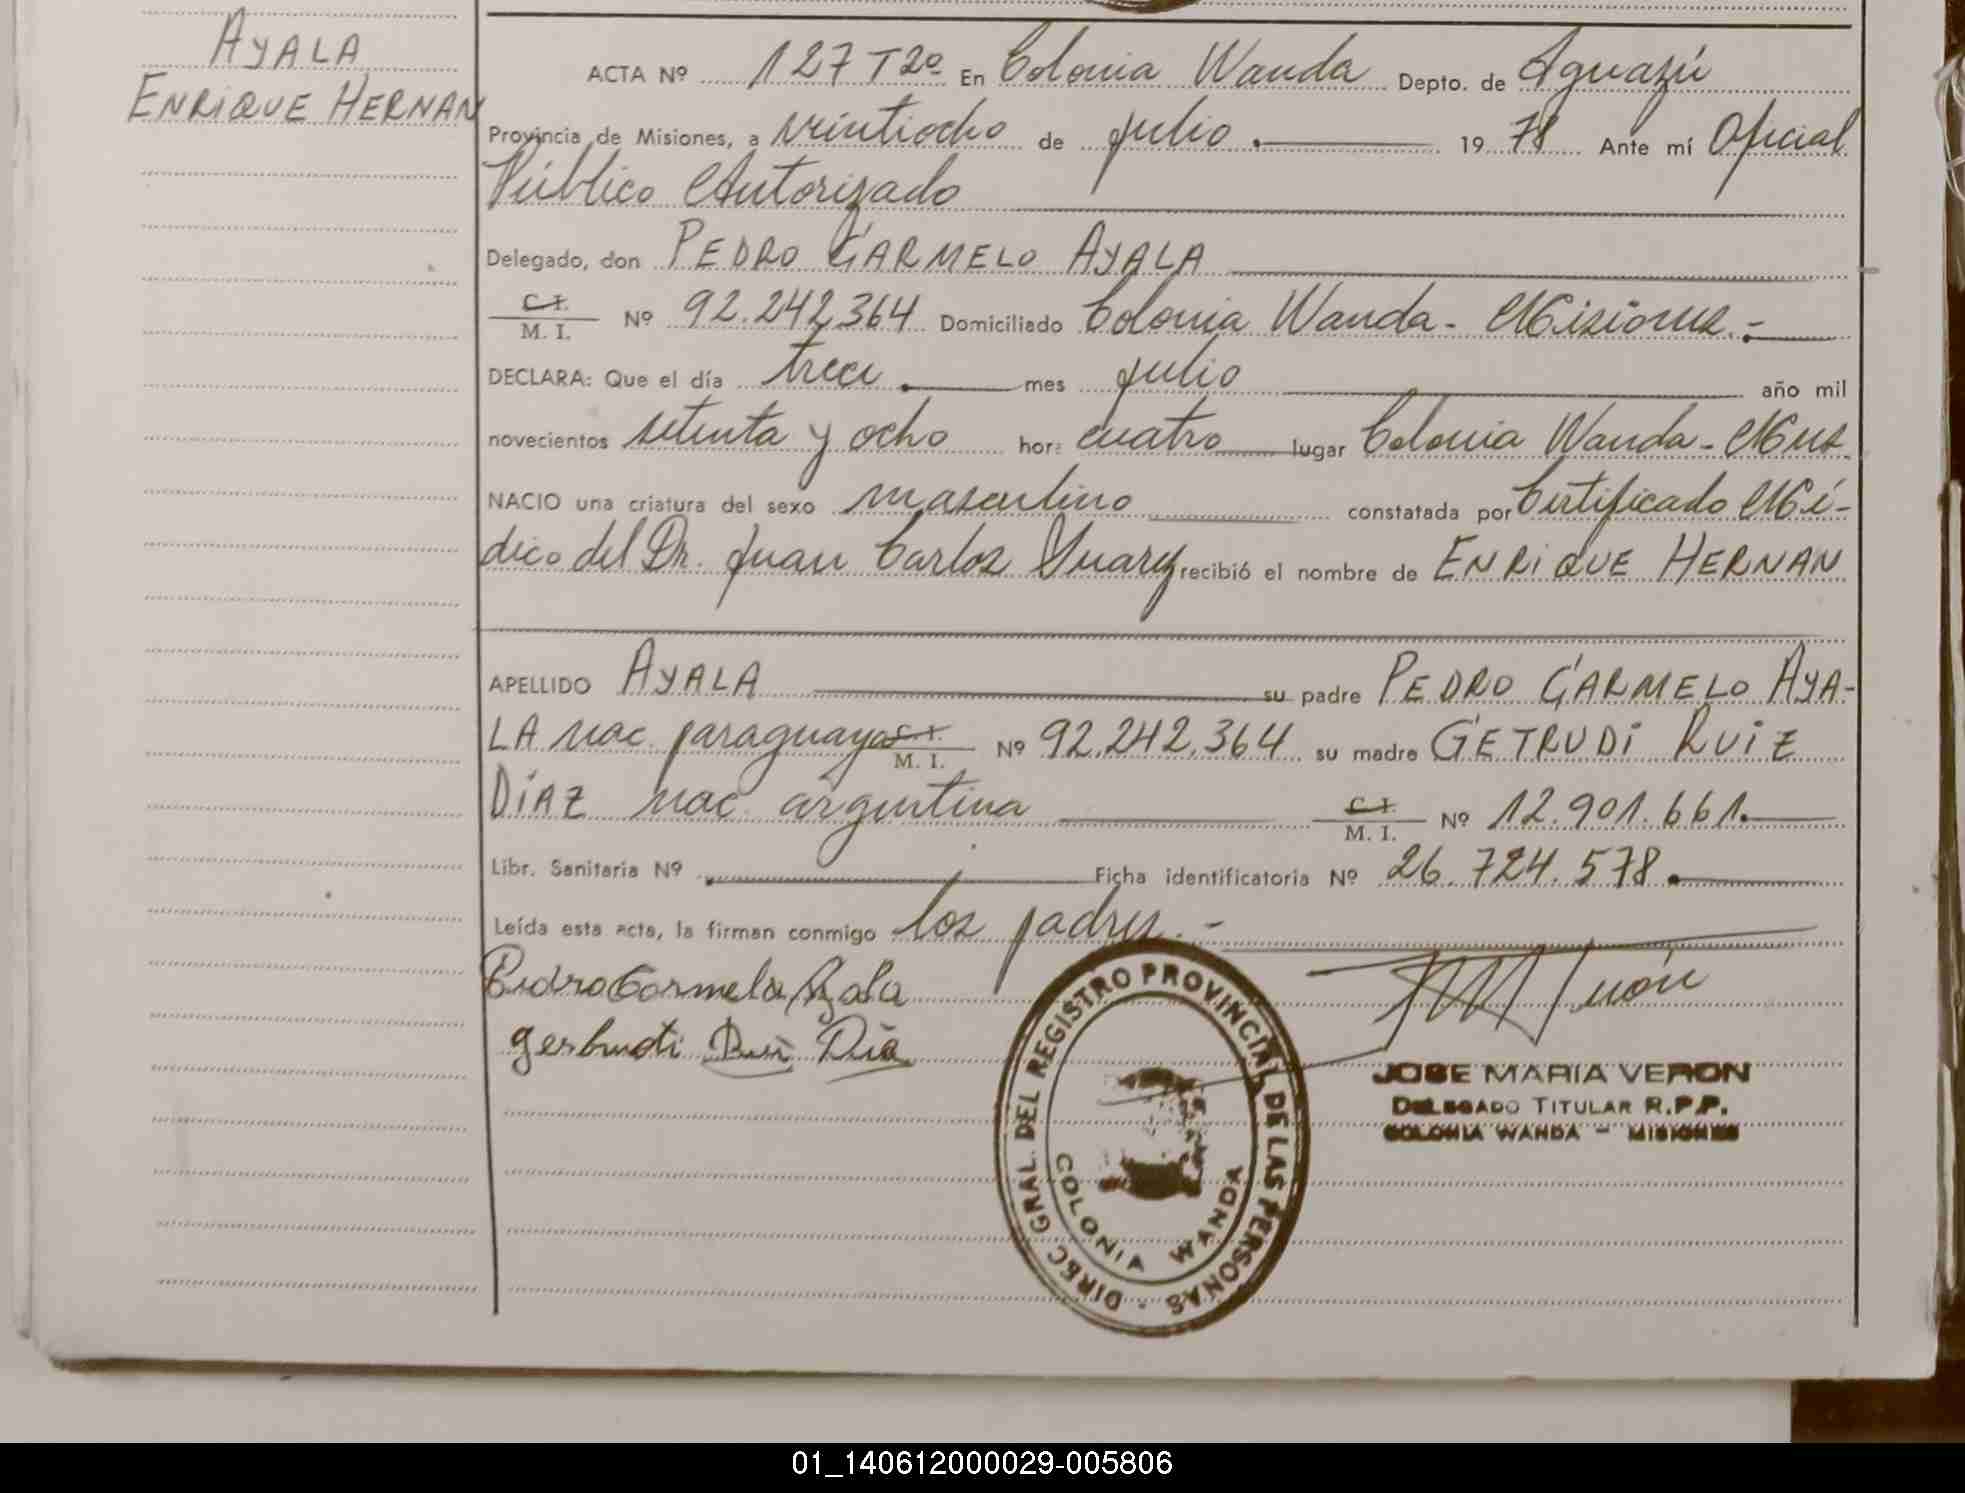 AYALA
ENRiQUE HERNAN
ACTA Nº 127 T2º En Colonia Wanda Depto. de Iguazú
Provincia de Misiones, a veintiocho de julio. 19 78 Ante mí Oficial
Público Autorizado
Delegado, don PEDRO CARMELO AYALA
C.I.
M. I. Nº 92.242.364 Domiciliado Colonia Wanda - Misiones.-
DECLARA: Que el día trece mes julio año mil
novecientos setenta y ocho hora cuatro lugar Colonia Wanda - Mnes.
NACIO una criatura del sexo masculino constatada por Certificado Mé-
dico del Dr. Juan Carlos Suarez recibió el nombre de ENRiQUE HERNAN
APELLIDO AYALA su padre PEDRO CARMELO AYA-
LA nac. paraguaya C.I. M. I. Nº 92.242.364 su madre GETRUDi RUiZ
DíAZ nac. argentina C.I. M. I. Nº 12.901.661.
Libr. Sanitaria Nº Ficha identificatoria Nº 26.724.578.
Leída esta acta, la firman conmigo los padres.-
Pedro Carmelo Ayala
gertrudi Rui Dia
DIREC. GRAL. DEL REGISTRO PROVINCIAL DE LAS PERSONAS
COLONIA WANDA
JOSE MARIA VERON
DELEGADO TITULAR R.P.P.
COLONIA WANDA - MISIONES
01_140612000029-005806